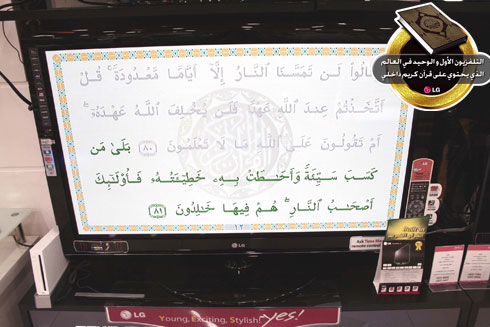 التلفزيون الأول والوحيد في العالم
الذي يحتوي على قرآن كريم داخلي
LG
لَن تَمَسَّنَا النَّارُ إِلَّا أَيَّامًا مَّعْدُودَةً ۚ قُلْ
أَتَّخَذْتُمْ عِندَ اللَّهِ عَهْدًا فَلَن يُخْلِفَ اللَّهُ عَهْدَهُ ۖ
أَمْ تَقُولُونَ عَلَى اللَّهِ مَا لَا تَعْلَمُونَ ﴿٨٠﴾ بَلَىٰ مَن
كَسَبَ سَيِّئَةً وَأَحَاطَتْ بِهِۦ خَطِيٓـَٔتُهُۥ فَأُو۟لَـٰٓئِكَ
أَصْحَـٰبُ النَّارِ ۖ هُمْ فِيهَا خَـٰلِدُونَ ﴿٨١﴾
١٢
LG
LG
Young, Exciting, Stylish! yes!